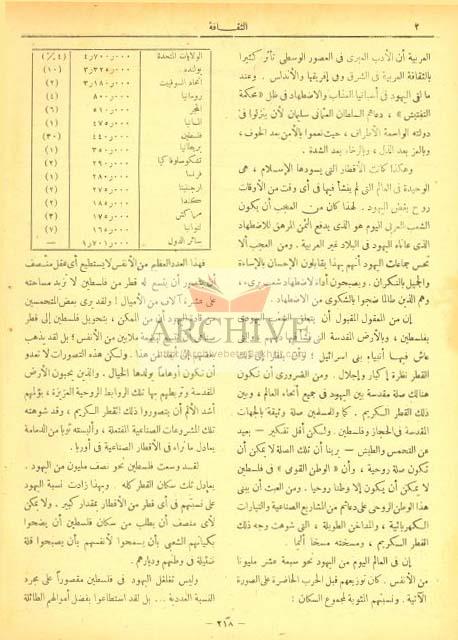 ٢
الثقافة
العربية أن الأدب العبرى فى العصور الوسطى تأثر كثيرا
بالثقافة العربية فى الشرق وفى إفريقيا والأندلس . وعند
ما لقى اليهود فى أسبانيا العذاب والاضطهاد فى ظل « محكمة
التفتيش » ، دعاهم السلطان العثمانى سليمان لأن ينزلوا فى
دولته الواسعة الأطراف ، حيث نعموا بالأمن بعد الخوف ،
وبالعز بعد الذل ، وبالرخاء بعد الشدة .
وهكذا كانت الأقطار التى يسودها الإسلام ، هى
الوحيدة فى العالم التى لم ينشأ فيها فى أى وقت من الأوقات
روح بغض اليهود . لهذا كان من العجب أن يكون
الشعب العربى اليوم هو الذى يدفع الثمن المرهق للاضطهاد
الذى عاناه اليهود فى البلاد غير العربية . ومن العجب ألا
تحس جماعات اليهود أنهم بهذا يقابلون الإحسان بالإساءة
والجميل بالنكران . ويصبحون أداة لاضطهاد شعب برىء ،
وهم الذين طالما ضجوا بالشكوى من الاضطهاد .
إن من المعقول المقبول أن يتعلق الشعب اليهودى
بفلسطين ، وبالأرض المقدسة التى
عاش فيها أنبياء بنى اسرائيل ؛ وأن ينظر إلى ذلك
القطر نظرة إكبار وإجلال . ومن الضرورى أن تكون
هنالك صلة مقدسة بين اليهود فى جميع أنحاء العالم ، وبين
ذلك القطر الكريم . كما وللمسلمين صلة وثيقة بالجهات
المقدسة فى الحجاز وفلسطين . ولكن أقل تفكير — بعيد
عن التحمس والطيش — يرينا أن تلك الصلة لا يمكن أن
تكون صلة روحية ، وأن « الوطن القومى » فى فلسطين
لا يمكن أن يكون إلا وطنا روحيا . ومن العبث أن يبنى
هذا الوطن الروحى على دعائم من المشاريع الصناعية والتيارات
الكهربائية ، والمداخن الطويلة ، التى شوهت وجه ذلك
القطر الكريم ، ومسخته مسخا أليما .
إن فى العالم اليوم من اليهود نحو سبعة عشر مليونا
من الأنفس . كان توزيعهم قبل الحرب الحاضرة على الصورة
الآتية . ونسبتهم المئوية لمجموع السكان :
الولايات المتحدة ٤٫٧٠٠٫٠٠٠ (٤ ٪)
بولنده ٣٫٣٢٥٫٠٠٠ (١٠)
اتحاد السوفيت ٣٫١٨٠٫٠٠٠ (٢)
رومانيا ٨٠٠٫٠٠٠ (٤)
المجر ٥١٠٫٠٠٠ (٦)
ألمانيا ٤٧٥٫٠٠٠ (١)
فلسطين ٤٤٠٫٠٠٠ (٣٠)
بريطانيا ٣٥٠٫٠٠٠ (١)
تشكوسلوفاكيا ٢٩٠٫٠٠٠ (٢)
فرنسا ٢٨٠٫٠٠٠ (١)
ارجنتينا ٢٧٥٫٠٠٠ (٢)
كندا ١٨٥٫٠٠٠ (٢)
مراكش ١٧٥٫٠٠٠ (٣)
لتوانيا ١٦٥٫٠٠٠ (٧)
سائر الدول ١٫٧٠١٫٠٠٠ —
فهذا العدد العظيم من الأنفس لا يستطيع أى عقل منصف
أن يتصور أن يتسع له قطر من فلسطين لا تزيد مساحته
على عشرة آلاف من الأميال ! ولقد يرى بعض المتحمسين
من قادة اليهود أن من الممكن ، بتحويل فلسطين إلى قطر
صناعى ملايين من الأنفس ؛ بل لقد يذهب
هذا . ولكن هذه التصورات لا تعدو
أن تكون أوهاما يولدها الخيال . والذين يحبون الأرض
المقدسة وتربطهم بها تلك الروابط الروحية العزيزة ، يؤلمهم
أشد الألم أن يتصوروا ذلك القطر الكريم ، وقد شوهته
تلك المشروعات الصناعية المفتعلة ، وألبسته ثوبا من الدمامة
يعادل ما نراه فى الأقطار الصناعية فى أوربا .
لقد وسعت فلسطين نحو نصف مليون من اليهود .
يعادل ثلث سكان القطر كله . وبهذا زادت نسبة اليهود
على نسبتهم فى أى قطر من الأقطار بمقدار كبير . ولا يمكن
لأى منصف أن يطلب من سكان فلسطين أن يضحوا
بكيانهم الشعبى بأن يسمحوا لأنفسهم بأن يصبحوا قلة
ضئيلة فى وطنهم وديارهم .
وليس تغلغل اليهود فى فلسطين مقصوراً على مجرد
النسبة العددية ... بل لقد استطاعوا بفضل أموالهم الطائلة
— ٢١٨ —
ARCHIVE